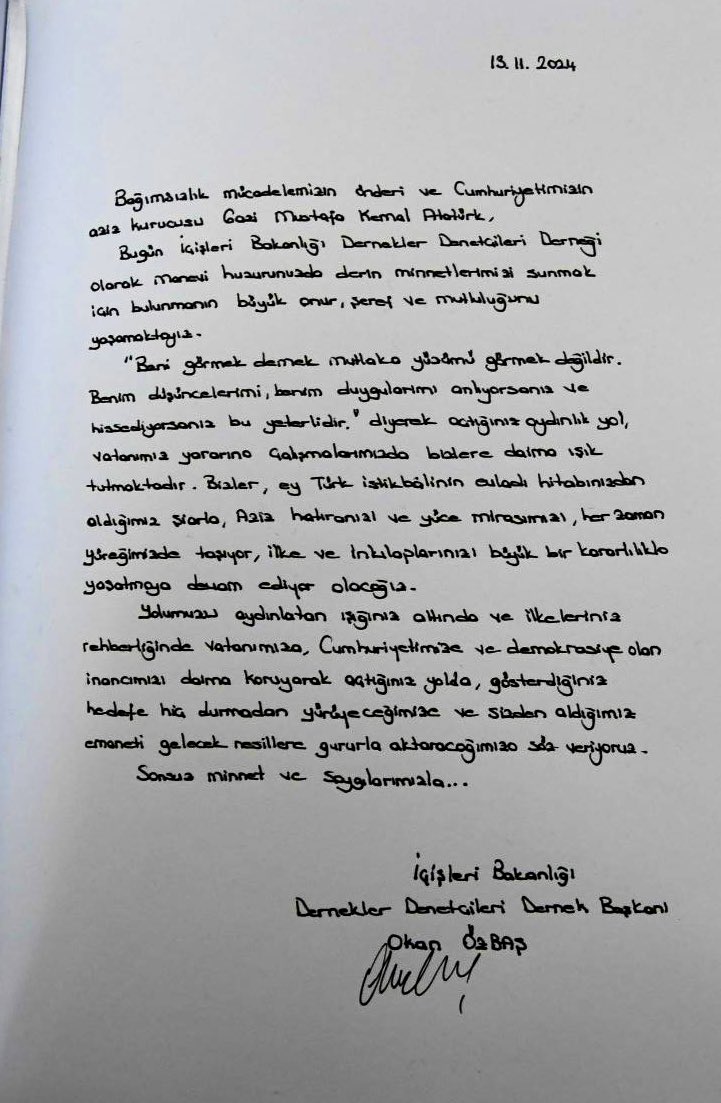 13.11.2024
Bağımsızlık mücadelemizin önderi ve Cumhuriyetimizin
aziz kurucusu Gazi Mustafa Kemal Atatürk,
Bugün İçişleri Bakanlığı Dernekler Denetçileri Derneği
olarak manevi huzurunuzda derin minnetlerimizi sunmak
için bulunmanın büyük onur, şeref ve mutluluğunu
yaşamaktayız.
"Beni görmek demek mutlaka yüzümü görmek değildir.
Benim düşüncelerimi, benim duygularımı anlıyorsanız ve
hissediyorsanız bu yeterlidir." diyerek açtığınız aydınlık yol,
vatanımız yararına çalışmalarımızda bizlere daima ışık
tutmaktadır. Bizler, ey Türk istikbâlinin evladı hitabınızdan
aldığımız şiarla, Aziz hatıranızı ve yüce mirasımızı, her zaman
yüreğimizde taşıyor, ilke ve inkılaplarınızı büyük bir kararlılıkla
yaşatmaya devam ediyor olacağız.
Yolumuzu aydınlatan ışığınız altında ve ilkeleriniz
rehberliğinde vatanımıza, Cumhuriyetimize ve demokrasiye olan
inancımızı daima koruyarak açtığınız yolda, gösterdiğiniz
hedefe hiç durmadan yürüyeceğimize ve sizden aldığımız
emaneti gelecek nesillere gururla aktaracağımıza söz veriyoruz.
Sonsuz minnet ve saygılarımızla...
İçişleri Bakanlığı
Dernekler Denetçileri Dernek Başkanı
Okan ÖZBAŞ